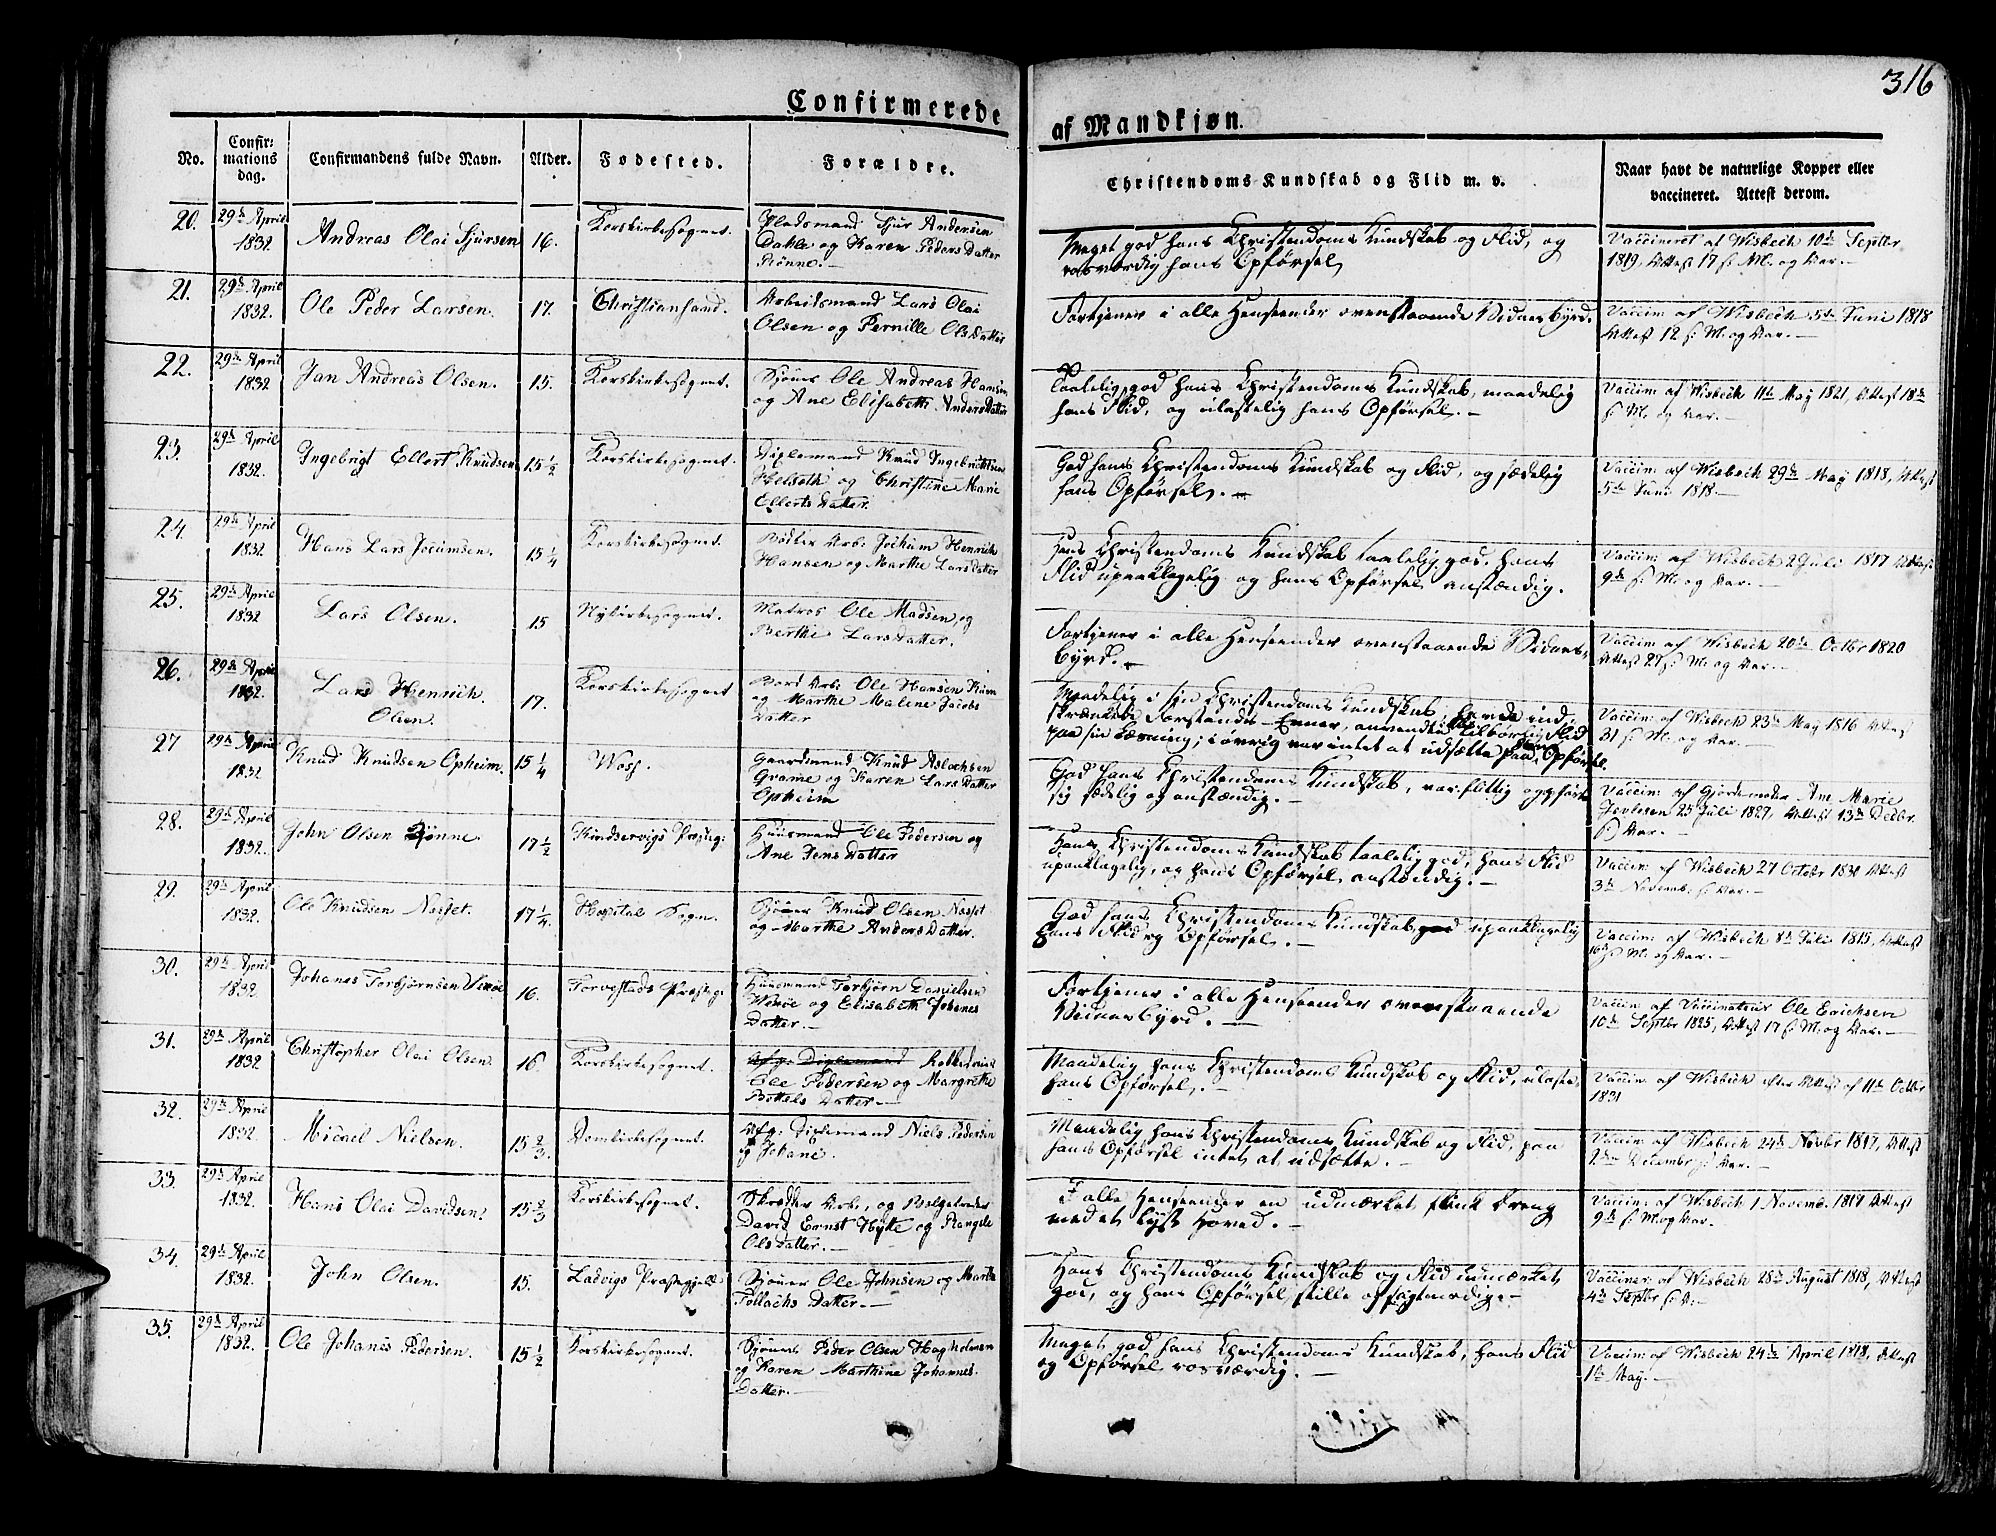 316
Confirmerede
af Mandkjøn.
No.
Confir:
mations
dag.
Confirmandens fulde Navn.
Alder.
Fødested.
Forældre.
Christendoms Kundskab og Flid m. v.
Naar havt de naturlige Kopper eller
vaccineret. Attest derom.
20.
29de April
1832.
Andreas Olai Sjursen
16.
Korskirkesognet.
Pladsmand Sjur Andersen
Dahle og Karen Peders Datter
Rönne.-
Meget god hans Christendoms Kundskab og Flid, og
rosværdig hans Opförsel
Vaccineret af Wisbech 10de Septbr
1819, Attest 17 s. M. og Aar.-
21.
29de April
1832.
Ole Peder Larsen.
17.
Christiansand.
Arbeidsmand Lars Olai
Olsen og Pernille Ols Datter
Fortjener i alle Henseender ovenstaaende Vidnesbyrd.
Vaccin: af Wisbech 5de Juni 1818
Attest 12 s. M. og Aar.-
22.
29de April
1832
Jan Andreas Olsen.
15.
Korskirkesognet.
Sjöms Ole Andreas Hansen
og Ane Elisabeth Anders Datter
Taalelig god hans Christendoms Kundskab, maadelig
hans Flid, og ulastelig hans Opförsel.-
Vaccin: af Wisbech 11te May 1821, Attest 18de
s. M. og Aar.-
23.
29de April
1832.
Ingebrigt Ellert Knudsen
15 1/2
Korskirkesognet.
Diplemand Knud Ingebrictsen
Helseth og Christine Marie
Ellerts Datter.
God hans Christendoms Kundskab og Flid, og sædelig
hans Opförsel.-
Vaccin: af Wisbech 29de May 1818, Attest
5te Juni 1818.-
24.
29de April
1832.
Hans Lars Jocumsen.
15 1/4
Korskirkesognet.
Bödker Arb: Jochum Henrich
Hansen og Marthe Lars Datter
Hans Christendoms Kundskab taalelig god, hans
Flid upaaklagelig og hans Opförsel anstændig.
Vaccin: af Wisbech 2 Juli 1817 Attest
9de s. M. og Aar.-
25.
29de April
1832
Lars Olsen.
15
Nykirkesognet.
Matros Ole Madsen, og
Berthe Lars Datter.
Fortjener i alle Henseender ovenstaaende Vidnes-
byrd.-
Vaccin: af Wisbech 20de Octbr 1820
Attest 27 s. M. og Aar.-
26.
29de April
1832.
Lars Henrich
Olsen.
17.
Korskirkesognet
Bord Arb: Ole Hansen
og Marthe Malene Jacobs
Datter
Maadelig i sin Christendoms Kundskab, havde ind-
skrænkede Forstands-Evner, anvendte tilbørlig Flid
paa sin Læsning; i øvrig var intet at udsætte paa hans Opförsel.
Vaccin: af Wisbech 23de May 1816 Attest
31 s. M. og Aar.-
27
29de April
1832.
Knud Knudsen Opheim.
15 1/4
Woss.
Gaardmand Knud Aslachsen
Grame og Karen Lars Datter
Opheim
God hans Christendoms Kundskab, var flittig og opførte
sig sædelig og anstændig.-
Vaccin: af Gjordemoder Ane Marie
25 Juli 1827, Attest 13de Decbr.
s. Aar.-
28.
29de April
1832.
John Olsen Rönne
17 1/2
Kindservigs Præsteg:
Huusmand Ole Pedersen og
Ane Jens Datter
Hans Christendoms Kundskab taalelig god, hans Flid
upaaklagelig, og hans Opförsel anstændig.-
Vaccin: af Wisbech 27 Octobr 1831 Attest
3de Novemb. s. Aar.-
29.
29de April
1832.
Ole Knudsen Nesset.
17 1/4
Hospital Sogn.
Sjömr Knud Olsen Nesset
og Marthe Anders Datter.
God hans Christendoms Kundskab, upaaklagelig
hans Flid og Opförsel.-
Vaccin: af Wisbech 8de Juli 1815, Attest
16de s. M. og Aar.-
30.
29de April
1832
Johanes Torbjörnsen
16.
Torvestads Præsteg:
Huusmand Torbjörn Danielsen
og Elisabeth Johanes
Datter.-
Fortjener i alle Henseender ovenstaaende
Vidnesbyrd.-
Vaccin: af Vaccinateur Ole Erichsen
10de Septbr 1825, Attest 17 s. M. og Aar.-
31.
29de April
1832
Christopher Olai Olsen.
16
Korskirkesognet.
Afg: Diplemand
Ole Pedersen og Margrethe
Bottels Datter.-
Maadelig hans Christendoms Kundskab og Flid, ulastel.
hans Opförsel.-
Vaccin: af Wisbech efter Attest af 11te Octbr
1831
32.
29de April
1832.
Micael Nielsen.
15 2/3.
Domkirkesognet.
Afg: Diplemand Niels Pedersen
og Johane.
Maadelig hans Christendoms Kundskab og Flid, paa
hans Opförsel intet at udsætte.-
Vaccin: af Wisbech 24de Novbr 1817, Attest
2den Decembr s. Aar.-
33.
29de April
1832.
Hans Olai Davidsen.
15 2/3
Korskirkesognet.
Skrædder Arb:, og Belgetræder
David Ernst Hytte og Rangele
Ols Datter.-
I alle Henseender en udmærket flink Dreng
med et lyst Hoved.-
Vaccin: af Wisbech 1 Novemb. 1817 Attest
9de s. M. og Aar.
34.
29de April
1832.
John Olsen.
15.
Ladvigs Præstegjeld
Sjömr Ole Johnsen og Marthe
Tollachs Datter.-
Hans Christendoms Kundskab og Flid udmærket
god, og hans Opförsel stille og sagtmodig.-
Vacciner: af Wisbech 28de August 1818, Attest
4de Septbr s. A.-
35.
29de April
1832.
Ole Johanes Pedersen.
15 1/2
Korskirkesognet.
Sjömr Peder Olsen
og Karen Marthine Johannes
Datter.-
Meget god hans Christendoms Kundskab, hans Flid
og Opförsel rosværdig.-
Vaccin: af Wisbech 24de April 1818, Attest
1te May.-